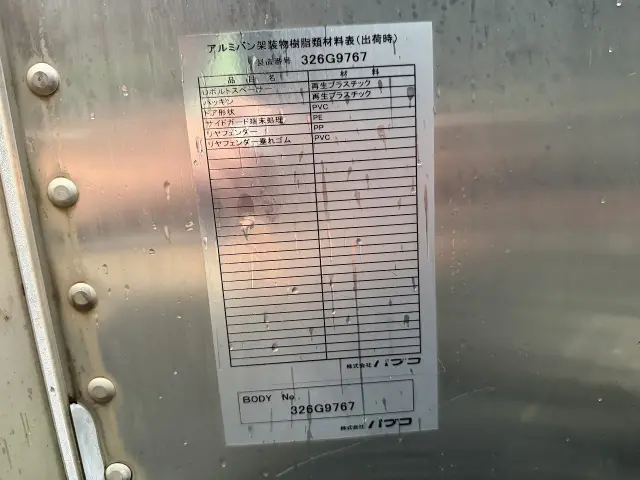 アルミバン架装物樹脂類材料表(出荷時)
製造番号 326G9767
品名 材料
Uボルトスペーサー 再生プラスチック
パッキン 再生プラスチック
ドア形状 PVC
サイドガード端末処理 PE
リヤフェンダー PP
リヤフェンダー垂れゴム PVC
株式会社パブコ
BODY No.
326G9767
株式会社パブコ